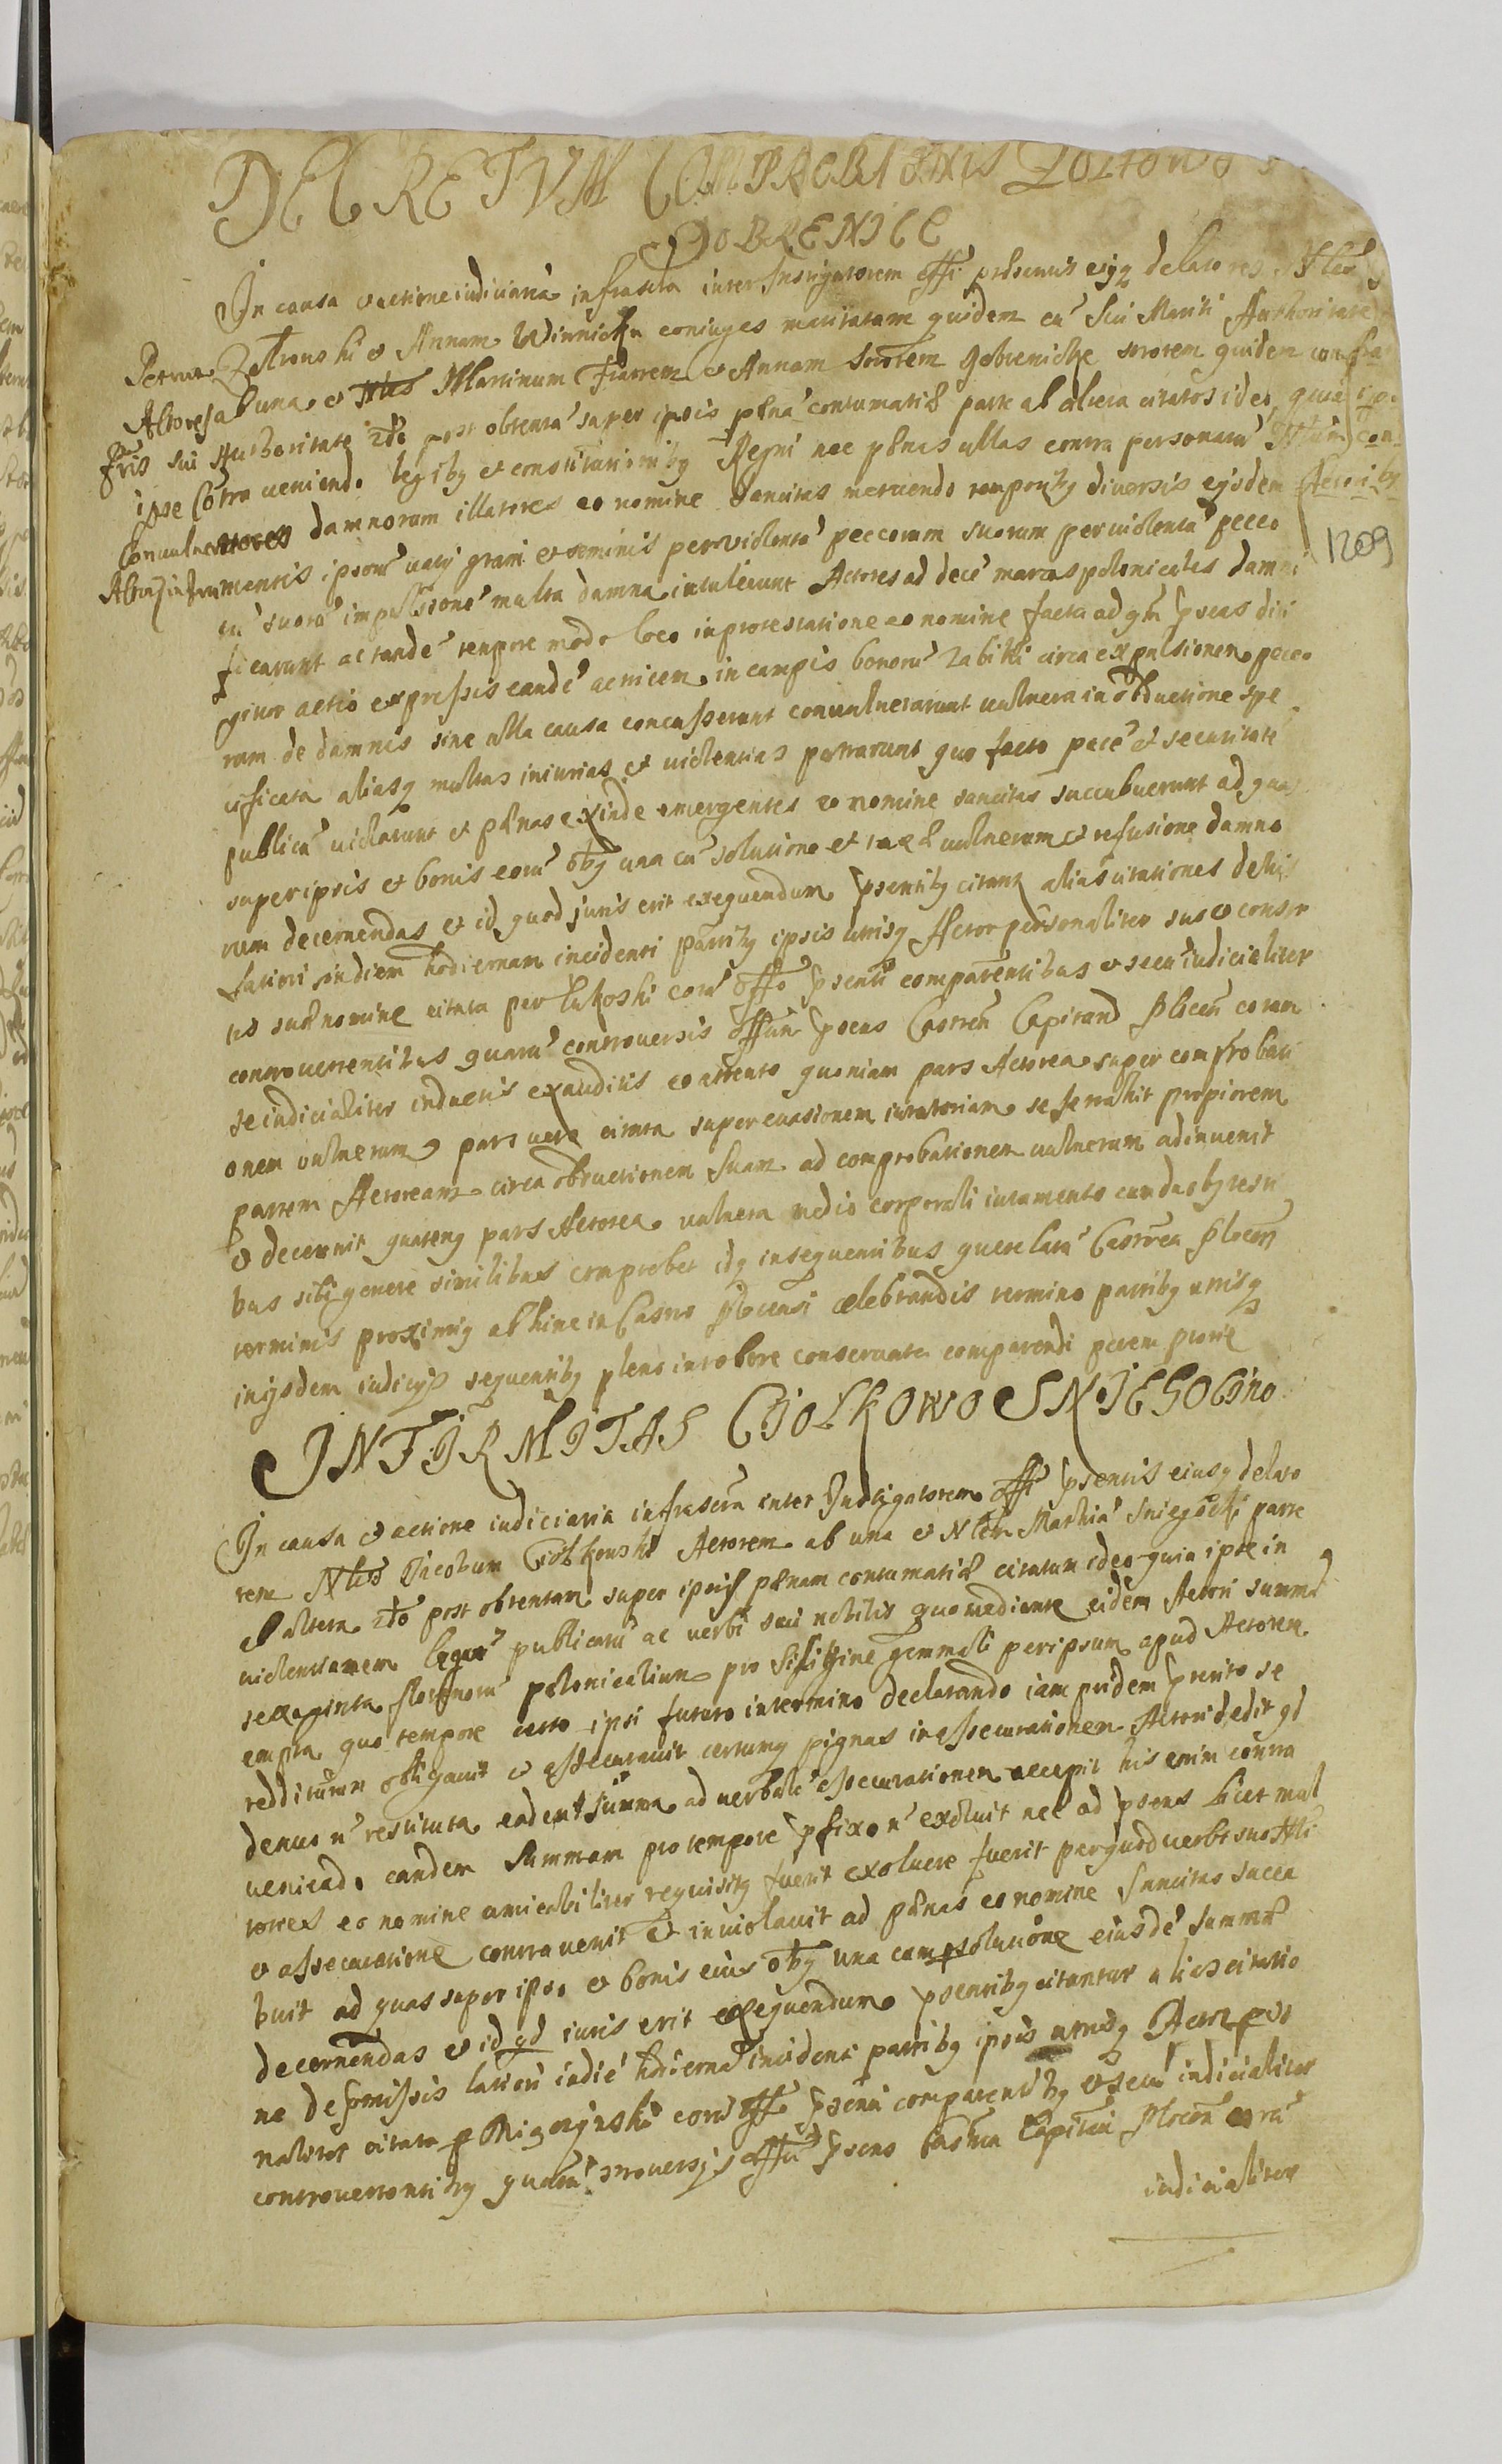 DECRETUM COMPROBATIONIS
DOBRENICE
In causa et actione iudiciaria infrascta inter Instigatorem offi presentis eiusq delatores Nblem
Petrum et Annam Winnicka coniuges maritatam quidem cu Sui Mariti Authoritate
Actores ab una et Nbles Martinum Fratrem et Annam Sororem Dobrenickie sororem quidem
fris sui Authoritate 2do post obtenta super ipsis pœna contumatiæ parte ab altera citatos ideo quia
ipse Contra ueniendo legibq et constitutionibq Regni nec pœnas ullas contra personaru Nblium con
uulneratores damnorum illatores eo nomine sancitas metuendo temporibq diversis ejsdem Actoribq
in frumentis ipsoru varij grani et seminis per violenta peccorum suorum per violenta pecco
ru suoru impulsione multa damna intulerunt Actores ad dece marcas polonicales damni
ficarunt ac tande tempore modo loco in protestatione eo nomine facta ad qm pseas diri
1209
gitur actio expressis eande actricem in campis bonoru Zabitki circa expulsionem pecco
rum de damnis sine ulla causa concusserunt conuulnerarunt uulnera in obductione spe
cificata aliasq multas iniurias et uiolentias patrarunt quo facto pace et securitate
publica uiolarunt et pœnas exinde emergentes eo nomine sancitas succubuerunt ad quas
super ipsis et bonis eoru obq una cu solutione et uulnerum et refusione damno
rum decernendas et id quod juris erit exequendum psentibq citant alias citationes de his
latiori indiem hodiernam incidenti partibq ipsis utrisq Actor personaliter suo et consor
tis suæ nomine citata per Lukoski cora offo psenti comparentibus et secu iudicialiter
controuertentibus quaru controversis offium psens Castren Capitan Plocen coram
se iudicialiter inductis exauditis eo attento quoniam pars Actorea super comprobati
onem uulnerum pars uero citata super euasionem iuratoriam se se trahit propiorem
partem Actoream circa obductionem Suam ad comprobationem uulnerum adinuenit
et decernit quatenq pars Actorea uulnera medio corporali iuramento cum duobq testi
bus sibi genere similibus comprobet idq in sequentibus querelaru Castren Plocen
terminis proximiq abhinc in Castro Plocensi celebrandis termino partibq utrisq
in ijsdem iudicijs sequentibq pleno in robore conseruata comparendi peremptorie
INFIRMITAS CIOLKOWO SNIEGOCINO
In causa et actione iudiciaria infrascta inter Instigatorem offi psentis eiusq delato
rem Nblis Jacobum Ciołkouski Actorem ab una et Nblem Mathia Sniegocki parte
ab altera 2do post obtentam super ipsis pœnam contumatiæ citatum ideo quia ipse in
uiolentiamen legu publicaru ac uerbi sui nobilis quo mediante eidem Actori summa
sexaginta florenoru polonicalium pro Siligine gemmali per ipsum apud Actorem
empta quo tempore certo ipsi futuro in termino declarando iam pridem preterito se
redditurum obligauit et assecurauit certumq pignus in assecurationem Actori dedit qd
denuo n restituta eadem summa ad uerbale assecurationem accepit his enim contra
ueniendo eandem Summam pro tempore pfixo n exoluit nec ad psens licet mul
toties eo nomine amicabiliter requisitq fuerit exoluere fuerit perquod uerbo suo Nbli
et assecuratione contrauenit et inuiolauit ad pœnas eo nomine sancitas succu
buit ad quas super ipso et bonis eius obq una cum psolutione eiusde summæ
decernendas et id qd iuris erit exequendum psentibq citantur alias citatio
ne de pmissis latiori indie hodierna incidenti partibq ipsis utrisq Actor perso
naliter citata p cora offo psenti comparentibq et secu iudicialiter
controuertentibq quaru ptrouersijs offiu psens Castren Capitan Plocen cora
iudicialiter